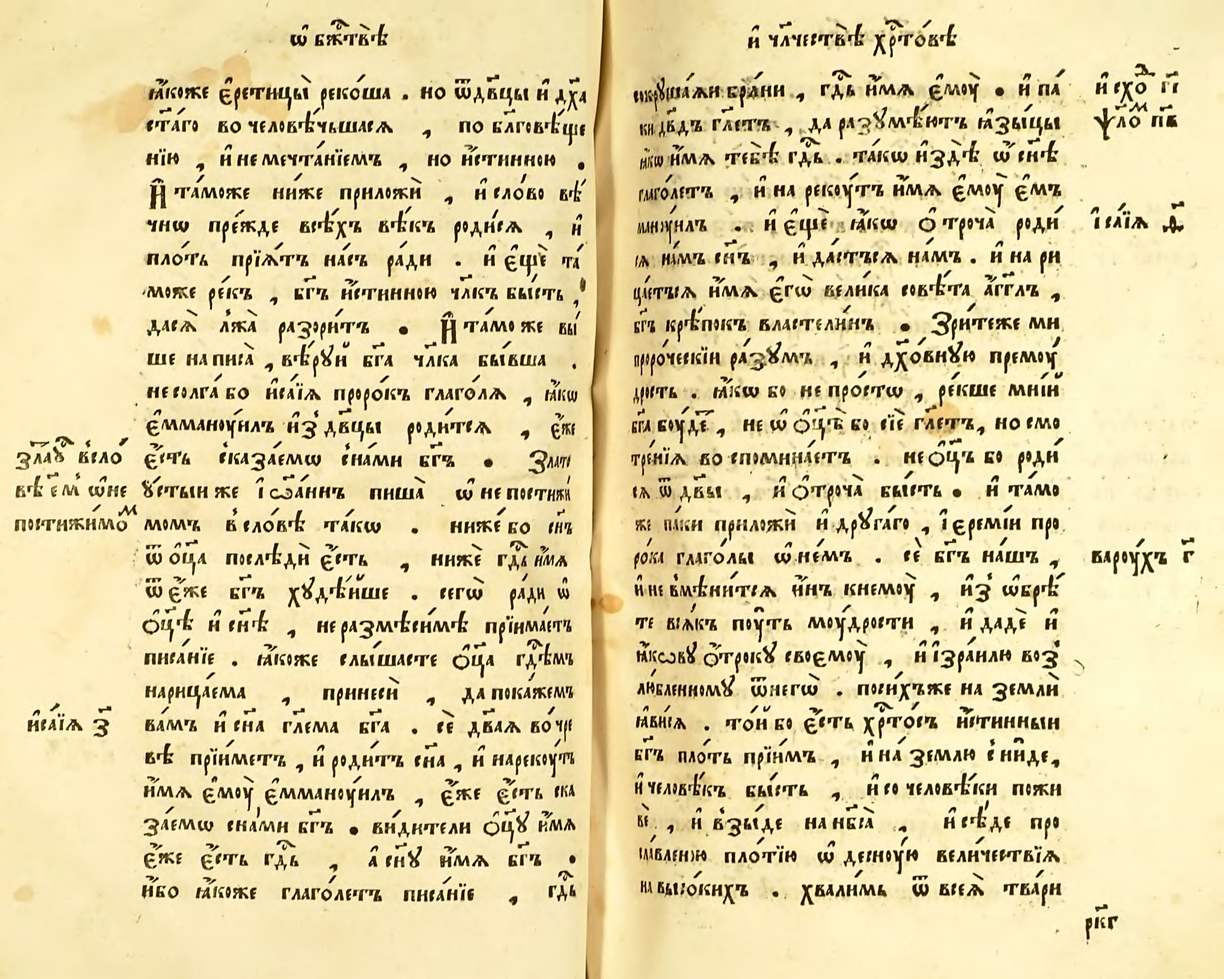 ѡ҆ бж҃твѣ
ꙗ҆́коже є҆ретицы̀ реко́ша . но ѿдв҃цы и҆ дх҃а
ст҃а́го во человѣ́чьшасѧ , по бл҃говѣ́ще
нїю , и҆ не мечта́нїемъ , но и҆́стинною .
И҆ та́може ниже приложѝ , и҆ сло́во вѣ́
чнѡ пре́жде всѣ́хъ вѣ́къ роди́сѧ , и҆
пло́ть прїѧ́тъ на́съ ра́ди . и҆ є҆щѐ та́
може ре́къ , бг҃ъ и҆́стинною чл҃къ бы́сть ,
дасѧ̀ лжа̀ разори́тъ . И҆ та́мо же вы́
ше написа̀ , вѣ́руй бг҃а чл҃ка бы́вша .
не солга́ бо и҆са́їѧ проро́къ глаго́лѧ , ꙗ҆́кѡ
є҆ммануи́лъ и҆з̾ дв҃цы роди́тсѧ , є҆́же
зла́ꙋ всло́
є҆́сть сказа́емѡ сна́ми бг҃ъ . Злато
вѣ є҆м̾ ѡ҆не
ꙋ҆́стыи же і҆ѡа́ннъ пиша̀ ѡ҆ непостижи́
постижимо́м
момъ в̾ сло́вѣ та́кѡ . ниже́ бо сн҃ъ
ѿ ѻ҆ц҃а послѣди є҆́сть , нижѐ гд҃ь и҆́мѧ
ѿ є҆́же бг҃ъ хꙋдѣ́йше . сегѡ̀ ра́ди ѡ҆
ѻ҆ц҃ѣ и҆ сн҃ѣ , неразмѣ́симѣ прїима́етъ
писа́нїе . ꙗ҆́коже слы́шасте ѻ҆ц҃а гд҃емъ
нарица́ема , принесѝ , да пока́жемъ
и҆са́їѧ з҃
ва́мъ и҆ сн҃а гл҃ема бг҃а . сѐ дв҃аѧ во чре́
вѣ прїи́метъ , и҆ роди́тъ сн҃а , и҆ нареко́утъ
и҆́мѧ є҆моу̀ є҆мманоуи́лъ , є҆́же є҆́сть ска
за́емѡ сна́ми бг҃ъ . ви́дители ѻ҆ц҃ꙋ и҆́мѧ
є҆́же є҆́сть гд҃ь , а҆ сн҃ꙋ и҆́мѧ бг҃ъ .
и҆́бо ꙗ҆́коже глаго́летъ писа́нїе , гд҃ь
и҆ чл҃честьвѣ хр҃то́вѣ
сокрꙋша́ѧи бра́ни , гд҃ь и҆́мѧ є҆моу̀ . и҆ па́
и҆схо́ г҃і
ки дв҃дъ гл҃етъ , да разꙋмѣ́ютъ ꙗ҆зы́цы
ѱло́м п҃в
ꙗ҆́кѡ и҆́мѧ тебѣ̀ гд҃ь . та́кѡ и҆ здѣ̀ ѡ҆ сн҃ѣ
глаго́летъ , и҆ на реко́утъ и҆́мѧ є҆моу̀ є҆м
маноуи́лъ . и҆ є҆щѐ ꙗ҆́кѡ ѻ҆троча̀ роди́
і҆са́їѧ д҃
сѧ на́мъ сн҃ъ , и҆ да́стъсѧ на́мъ . и҆ на ри
ца́етъсѧ и҆́мѧ є҆гѡ̀ вели́ка совѣ́та а҆́гг҃лъ ,
бг҃ъ крѣ́покъ властели́нъ . Зри́теже ми
проро́ческїи ра́зꙋмъ , и҆ дх҃о́внꙋю премоу́
дрость . ꙗ҆́кѡ бо не про́стѡ , ре́кше мні́й
бг҃а боу́де , не ѡ҆ ѻ҆ц҃ѣ бо сїѐ гл҃етъ , но смо
тре́нїѧ во спомина́етъ . не ѻ҆ц҃ъ бо роди́
сѧ ѿ дв҃ы , и҆ ѻ҆троча̀ бы́сть . и҆ та́мо
же па́ки приложѝ и҆ дрꙋга́го , і҆еремі́и про
ро́ка глаго́лы ѡ҆ не́мъ . сѐ бг҃ъ на́шъ ,
вароу́хъ г҃
и҆ не вмѣни́тсѧ и҆́нъ к немоу̀ , и҆з̾ ѡ҆брѣ́
те всѧ́къ поу́ть моу́дрости , и҆ дадѐ и҆
ꙗ҆́кѡвꙋ ѻ҆́трокꙋ своемоу̀ , и҆ і҆зра́илю воз̾
лю́бленномꙋ ѿ негѡ̀ . посихъ́же на землѝ
ꙗ҆ви́сѧ . то́й бо є҆́сть хр҃то́съ и҆́стинныи
бг҃ъ пло́ть прїи́мъ , и҆ на́ землю сни́де ,
и҆ человѣ́къ бы́сть , и҆ со человѣ́ки пожи
вѐ , и҆ взы́де на нб҃са̀ , и҆ сѣ́де про
сла́вленою пло́тїю ѡ҆ десноу́ю вели́чествїѧ
на высо́кихъ . хва́лимь ѿ всеѧ̀ тва́ри
рк҃г